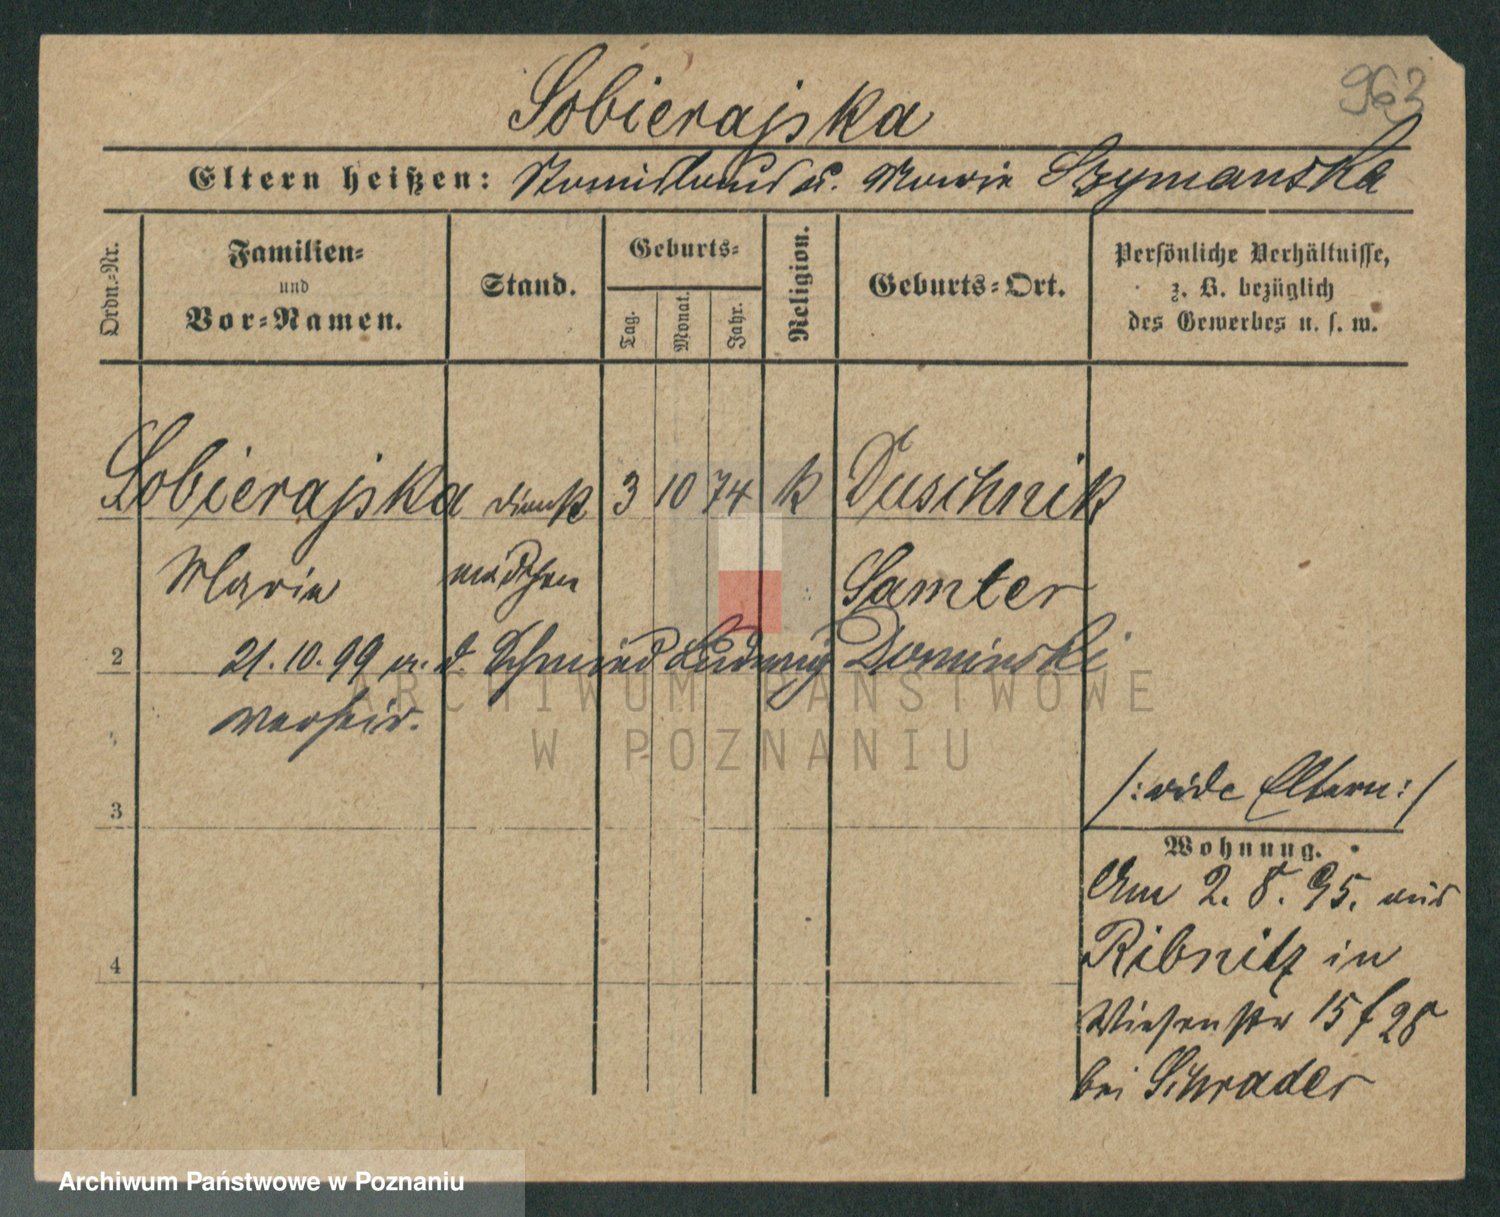 963
Sobierajska
Eltern heißen: Stanislaus u. Marie Szymanska
Ordn.-Nr.
Familien-
und
Vor-Namen.
Stand.
Geburts-
Tag.
Monat.
Jahr.
Religion.
Geburts-Ort.
Persönliche Verhältnisse,
z. B. bezüglich
des Gewerbes u. s. w.
Sobierajska dienst 3 10 74 k Duschnik
Marie mädchen Samter
2 21.10.99 m. d. Schmied Ludwig Dominski
verheir.
3
4
/: vide Eltern :/
Wohnung.
Am 2. 8. 95. aus
Ribnitz in
Wiesenstr 15 f 28
bei Schrader
ARCHIWUM PAŃSTWOWE
W POZNANIU
Archiwum Państwowe w Poznaniu